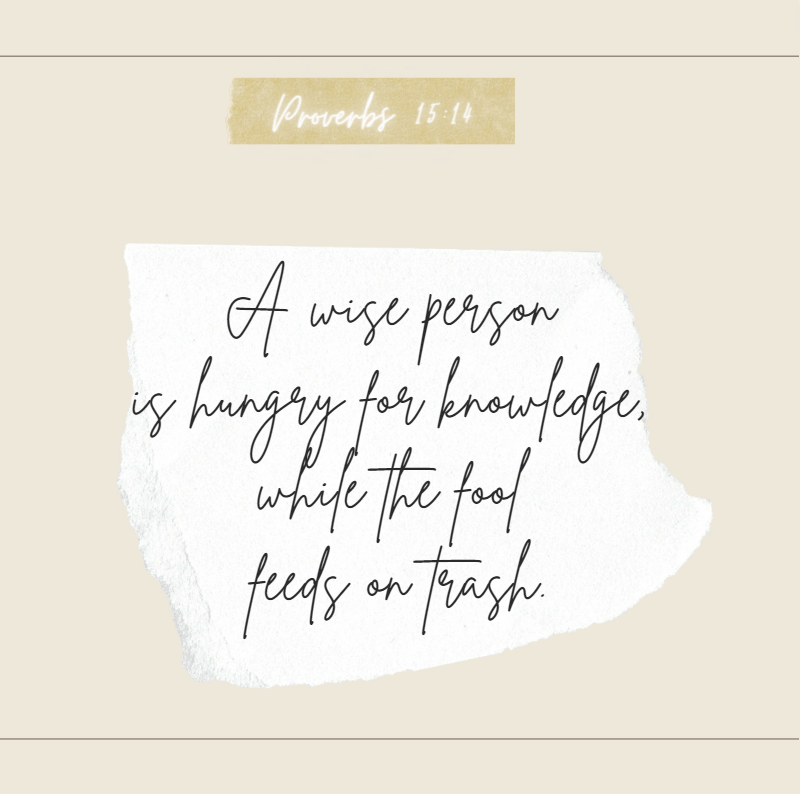 Proverbs 15:14
A wise person
is hungry for knowledge,
while the fool
feeds on trash.